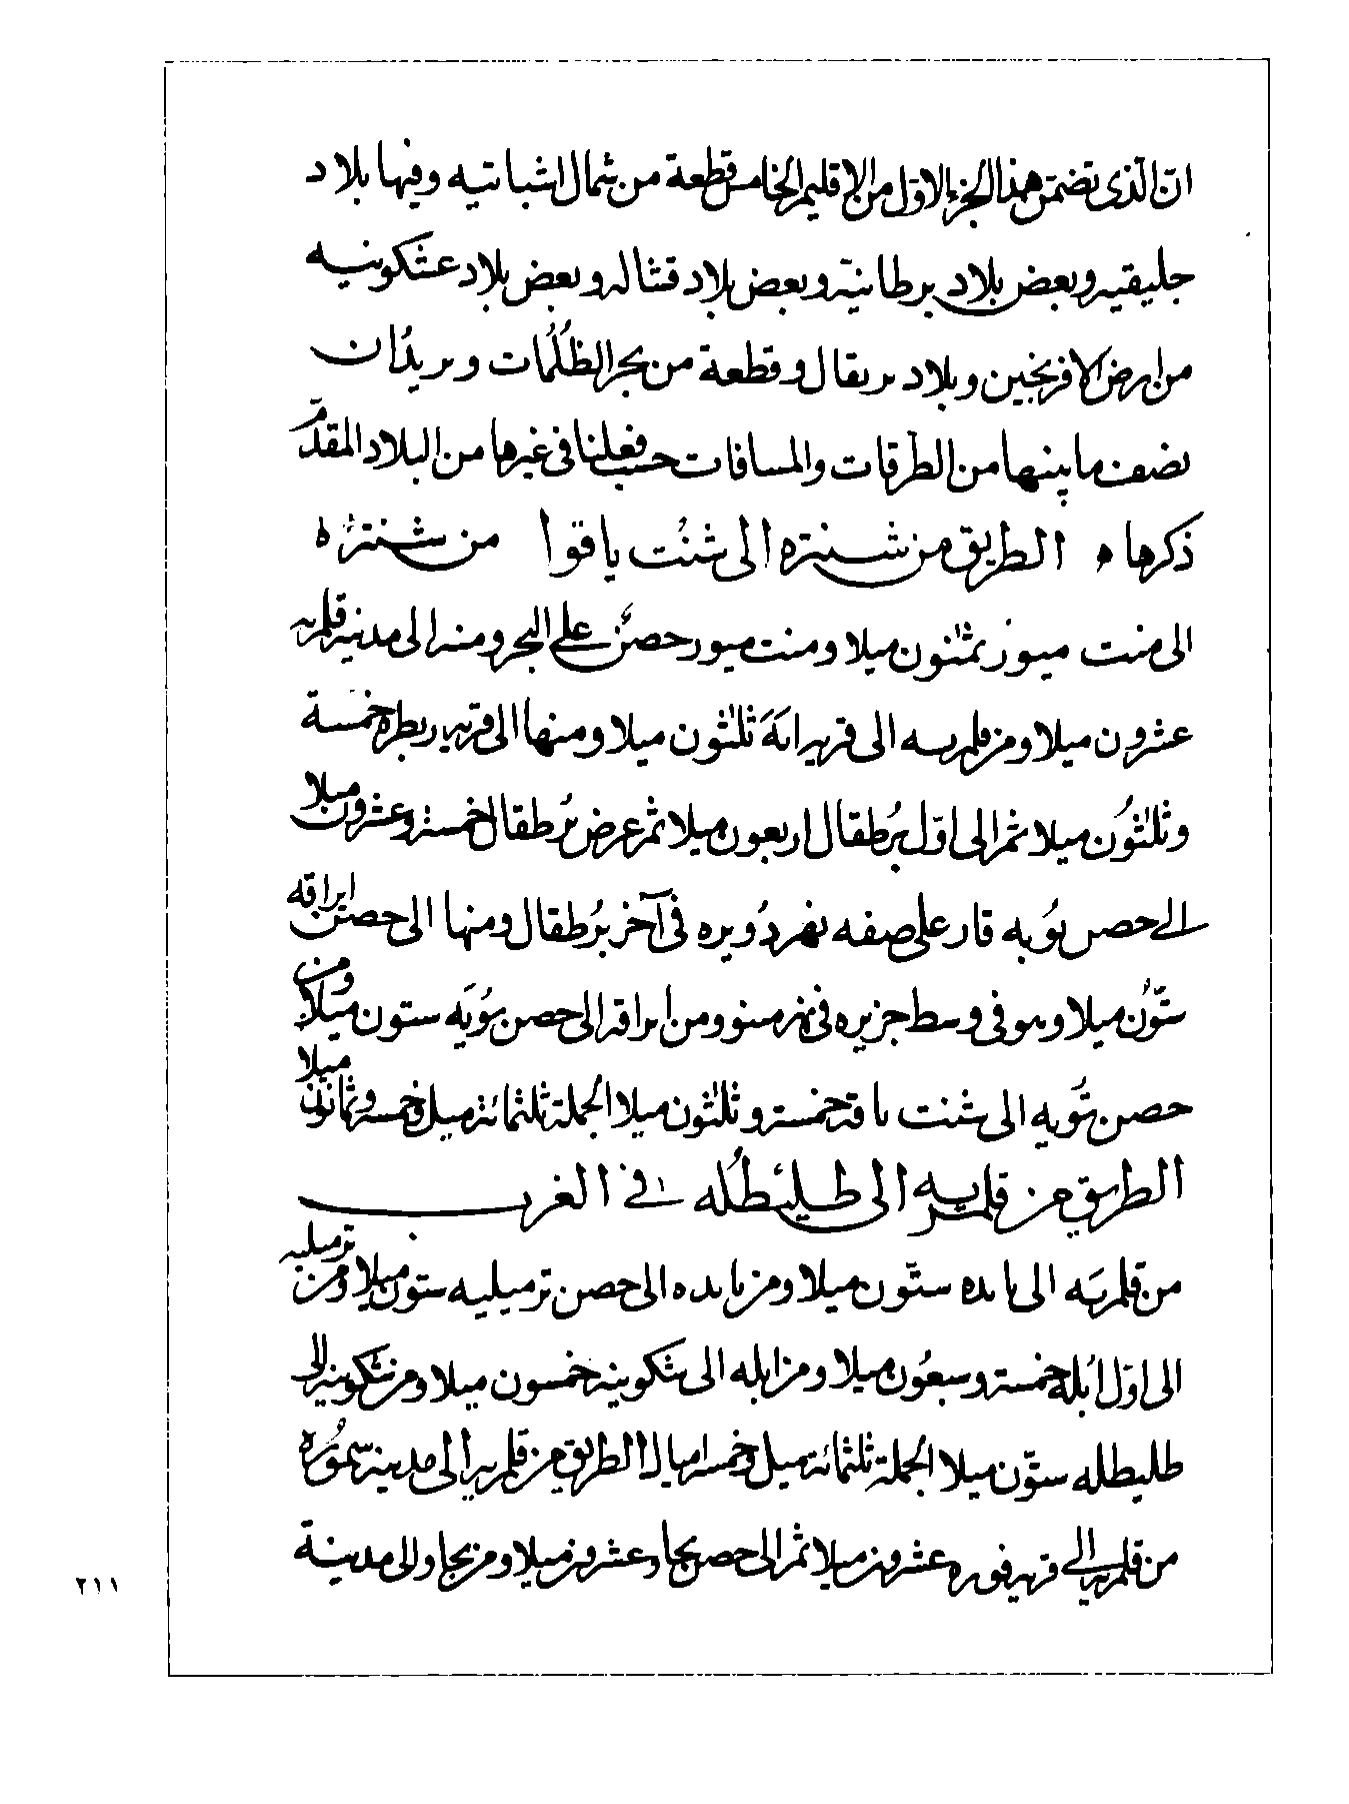 انّ الّذى تضمّن هذا الجزء الاوّل من الاقليم الخامس قطعة من شمال اشبانيه وفيها بلاد
جليقيه وبعض بلاد برطانيّه وبعض بلاد قشاله وبعض بلاد عشكونيه
من ارض الافرنجين وبلاد برتقال وقطعة من بحر الظُلُمات ونريدُ ان
نصف ما بينها من الطرقات والمسافات حسب فعلنا فى غيرها من البلاد المقدّم
ذكرها ه الطريق من شنتره الى شنُت ياقوا من شنتره
الى منت ميور ثمٰنون ميلا ومنت ميور حصن على البحر ومنه الى مدينه قلمريه
عشرون ميلا ومن قلمريه الى قريه ابَهَ ثلٰثون ميلا ومنها الى قريه ربطره خمسة
وثلٰثوُن ميلا ثم الى اوّل برُطقال اربعون ميلا ثم عرض برُطقال خمسة وعشرون ميلا
الى حصن بوُبه قار على ضفه نهر دُويره فى آخر برُطقال ومنها الى حصن ابراقه
ستّوُن ميلا وهو فى وسط جزيره فى نهر منو ومن ابراقه الى حصن بوُبَه ستون ميلا ومن
حصن توُبه الى شنت ياقه خمسة وثلٰثون ميلا الجملة ثلثمائة ميل وخمسه وثمانون ميلا
الطريق من قلمريه الى طليُطُله فى الغرب
من قلمريَه الى بابده ستّون ميلا ومن بابده الى حصن ترميليه ستون ميلا ومن ترميليه
الى اوّل ابُله خمسة وسبعُون ميلا ومن ابله الى شكوبيه خمسون ميلا ومن شكوبيه الى
طليطله ستّون ميلا الجملة ثلثمائة ميل وخمسه اميال الطريق من قلمريه الى مدينه سمورُه
من قلمريه الى قريه فوره عشرون ميلا ثم الى حصن بجاو عشرون ميلا ومن بجاو الى مدينة
٢١١